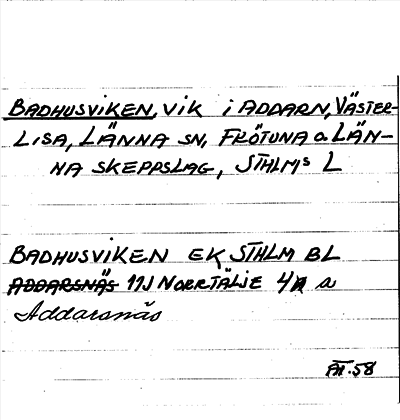 BADHUSVIKEN, VIK i ADDARN, VÄSTER-
LISA, LÄNNA SN, FRÖTUNA o LÄN-
NA SKEPPSLAG, STHLMS L
BADHUSVIKEN EK STHLM BL
ADDARSNÄS 11J NORRTÄLJE 4 a
Addarsnäs
58